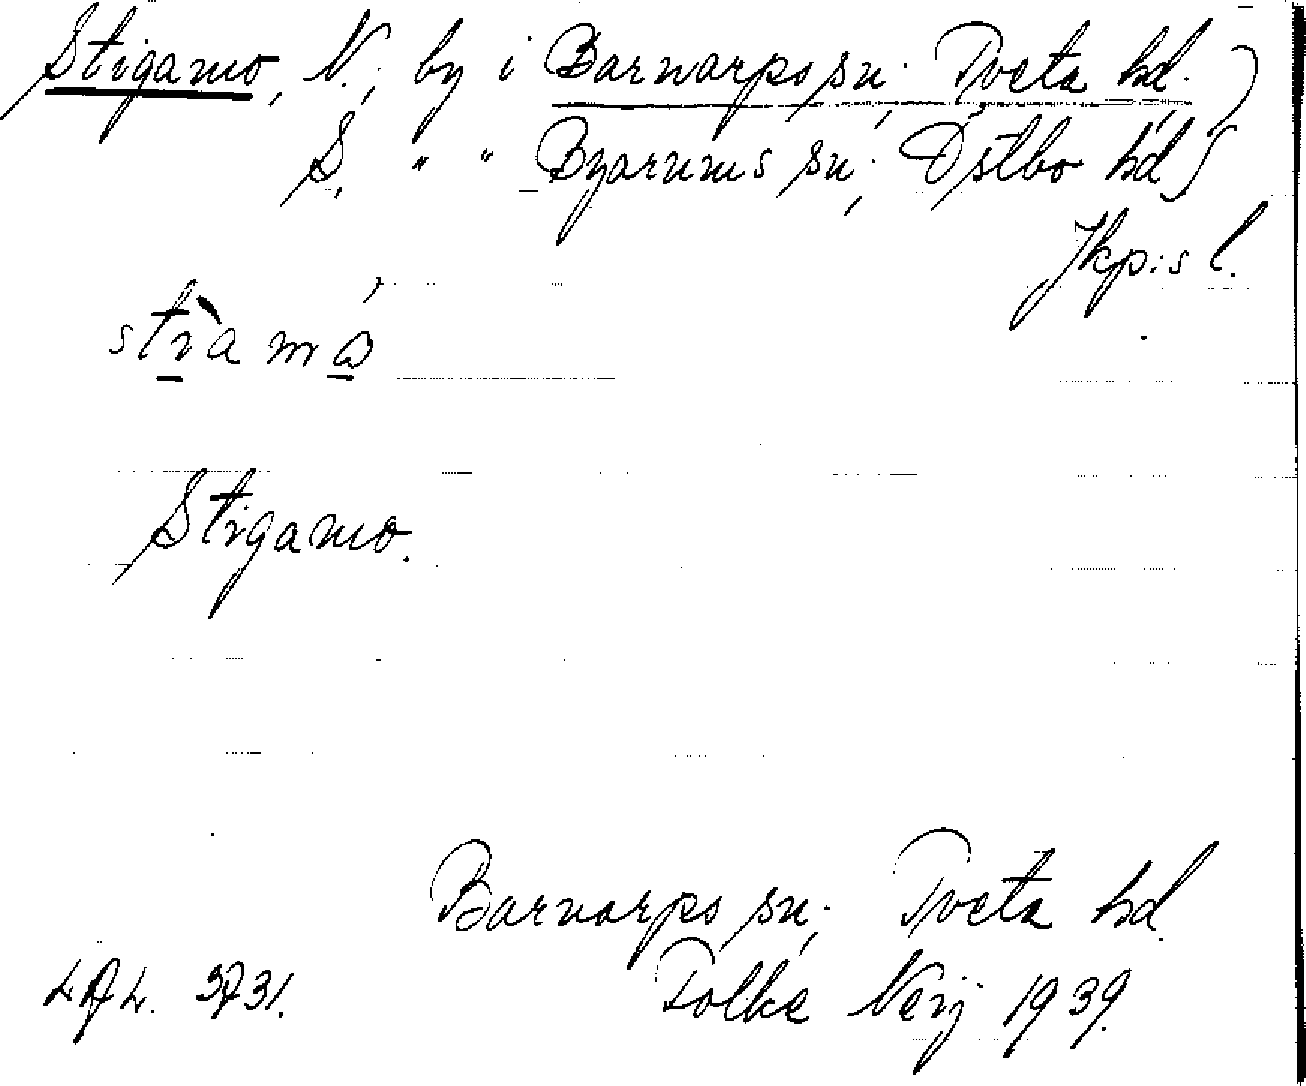 Stigamo, N., by i Barnarps sn; Tveta hd. }
S. " " Byarums sn; Östbo hd }
Jkp:s l.
Stigamo.
Barnarps sn; Tveta hd.
Folke Neij 1939.